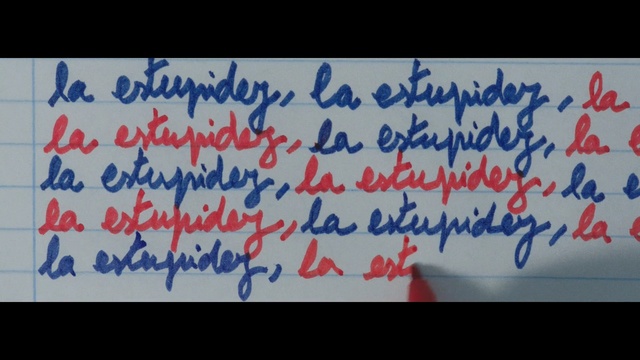 la estupidez, la estupidez, la
la estupidez, la estupidez, la
la estupidez, la estupidez, la
la estupidez, la estupidez, la
la estupidez, la est